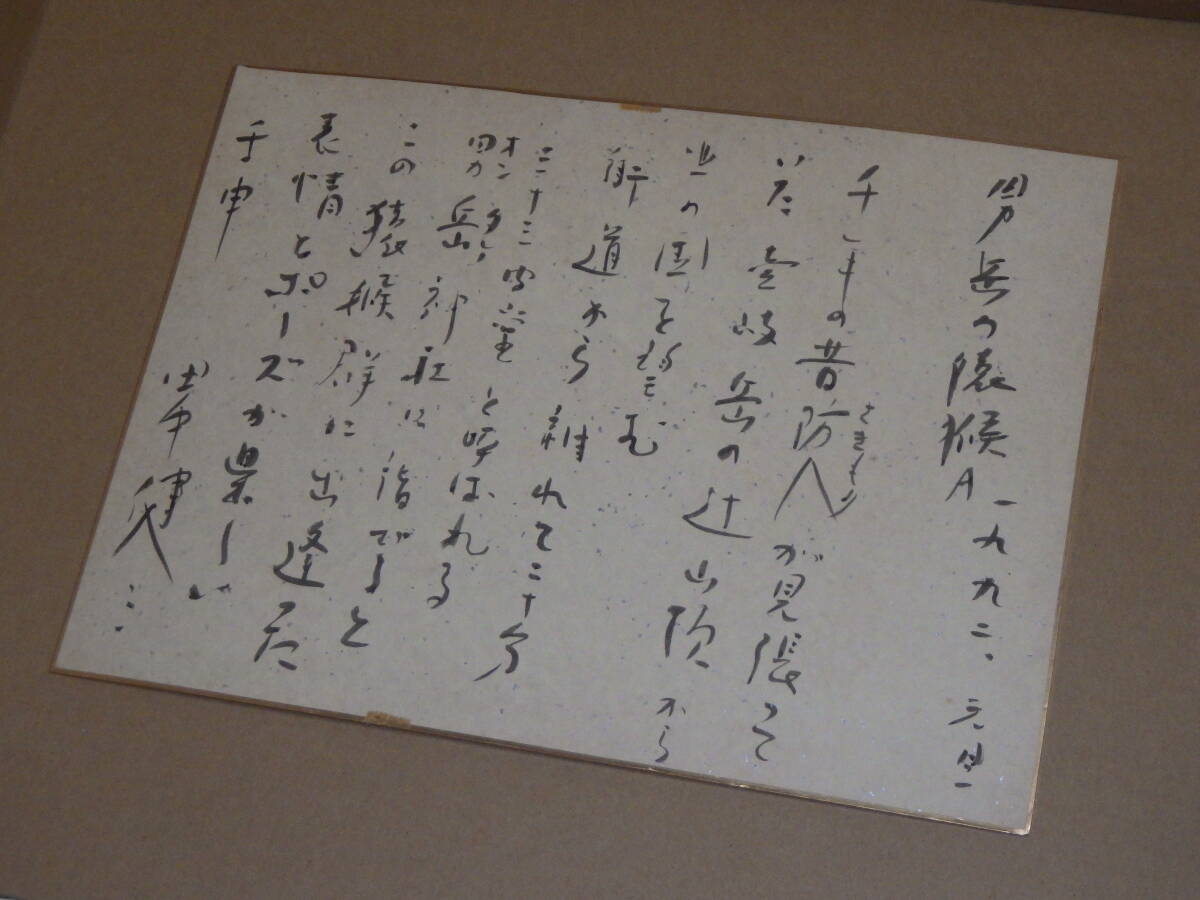 男岳の猿猴A 一九九二、元旦
の昔防人が見張って
さきもり
いた壱岐岳の辻山頂から
の国を
街道から離れて二十分
三十三霊堂と呼ばれる
オンダケ
男岳神社に詣でると
この猿猴群に出逢った
表情とポーズが楽しい
壬申
田中